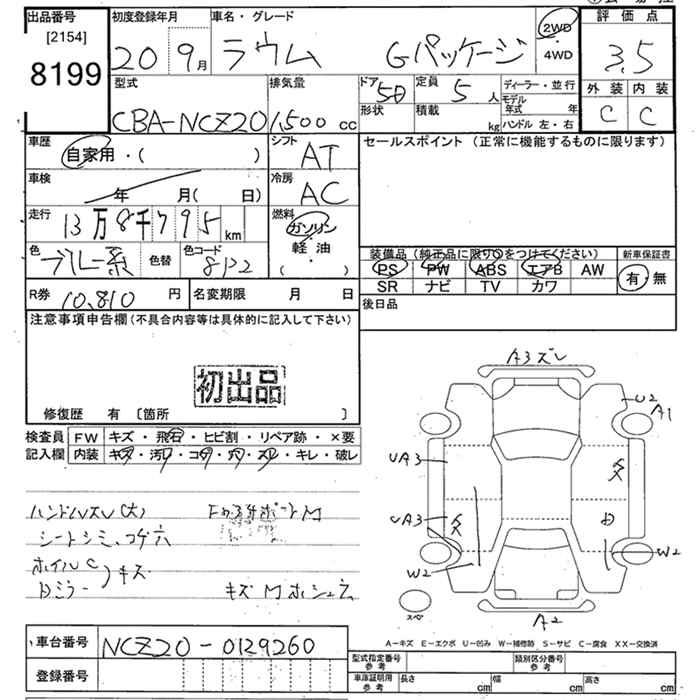 出品番号 初度登録年月 車名・グレード 評価点
[2154] 20 9月 ラウム Gパッケージ 2WD・4WD 3.5
8199 型式 排気量 ドア 定員 ディーラー・並行 外装 内装
CBA-NCZ20 1,500 cc 5 5人 モデル年式 年 C C
形状 積載 kg ハンドル 左・右
車歴 自家用・( ) シフト AT セールスポイント (正常に機能するものに限ります)
車検 年 月(日) 冷房 AC
走行 13万8千795km 燃料 ガソリン・軽油・( )
色 ブルー系 色替 色コード 8P2 装備品 (純正品に限り○をつけてください) 新車保証書
PS PW ABS エアB AW 有・無
SR ナビ TV カワ
R券 10,810円 名変期限 月 日 後日品
注意事項申告欄 (不具合内容等は具体的に記入して下さい)
初出品
修復歴 有 [箇所 ]
検査員 FW キズ・飛石・ヒビ割・リペア跡・×要
記入欄 内装 キズ・汚レ・コゲ・穴・スレ・キレ・破レ
A3ズレ
U2 A1
UA3
UA3
W2 W2
スペヤ
A2
ハンドルスレ(大)
シートシミ、コゲ穴
ホイルC キズ
Dミラー キズ
A-キズ E-エクボ U-凹み W-補修跡 S-サビ C-腐食 XX-交換済
車台番号 NCZ20-0129260 型式指定番号 参考 類別区分番号 参考
登録番号 車庫証明用 参考 長さ cm 幅 cm 高さ cm